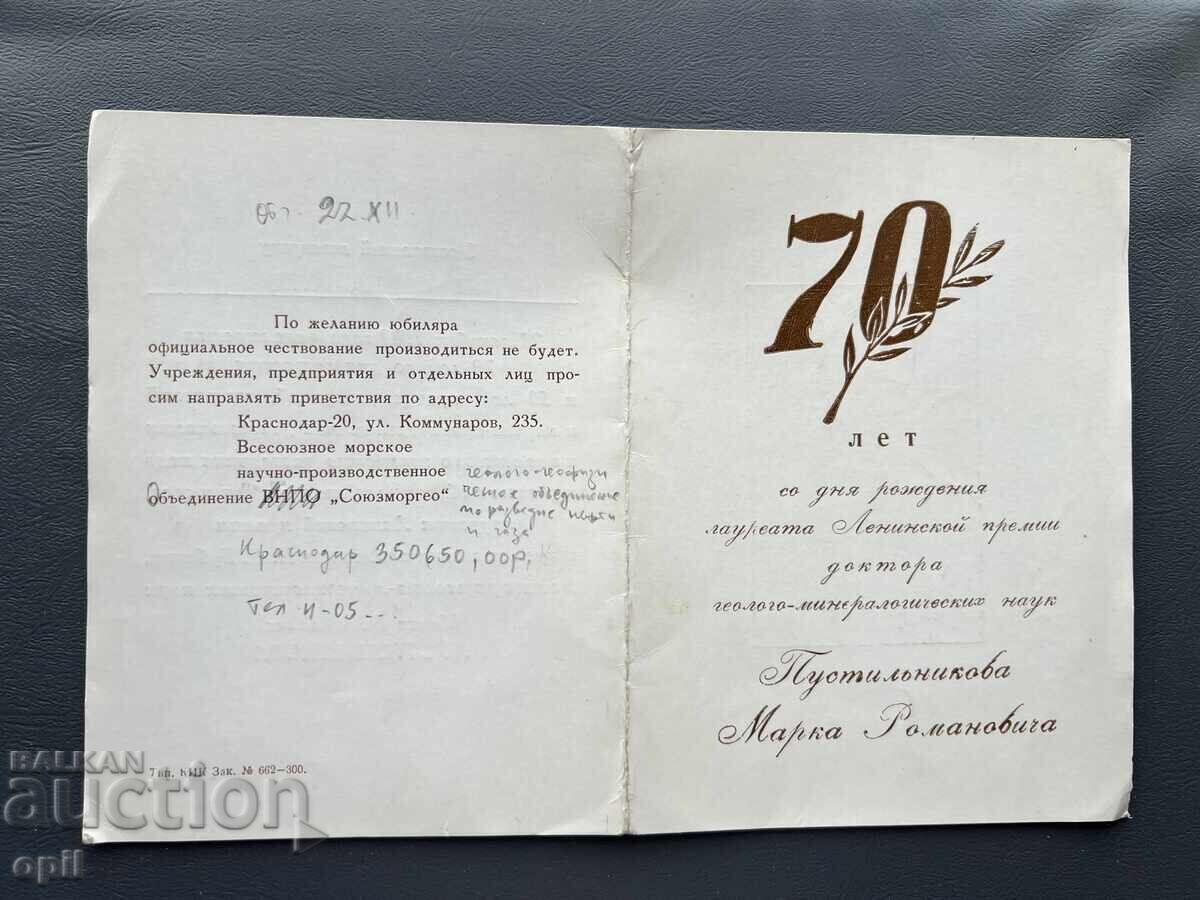 22 XII
По желанию юбиляра
официальное чествование производиться не будет.
Учреждения, предприятия и отдельных лиц про-
сим направлять приветствия по адресу:
Краснодар-20, ул. Коммунаров, 235.
Всесоюзное морское
научно-производственное
объединение ВНПО „Союзморгео“
геолого-геофизи
ческое объединение
по разведке нефти
и газа
Краснодар 350650,
Тел
Тип. Зак. № 662—300.
70
лет
со дня рождения
лауреата Ленинской премии
доктора
геолого-минералогических наук
Пустильникова
Марка Романовича
BALKAN
auction
opil